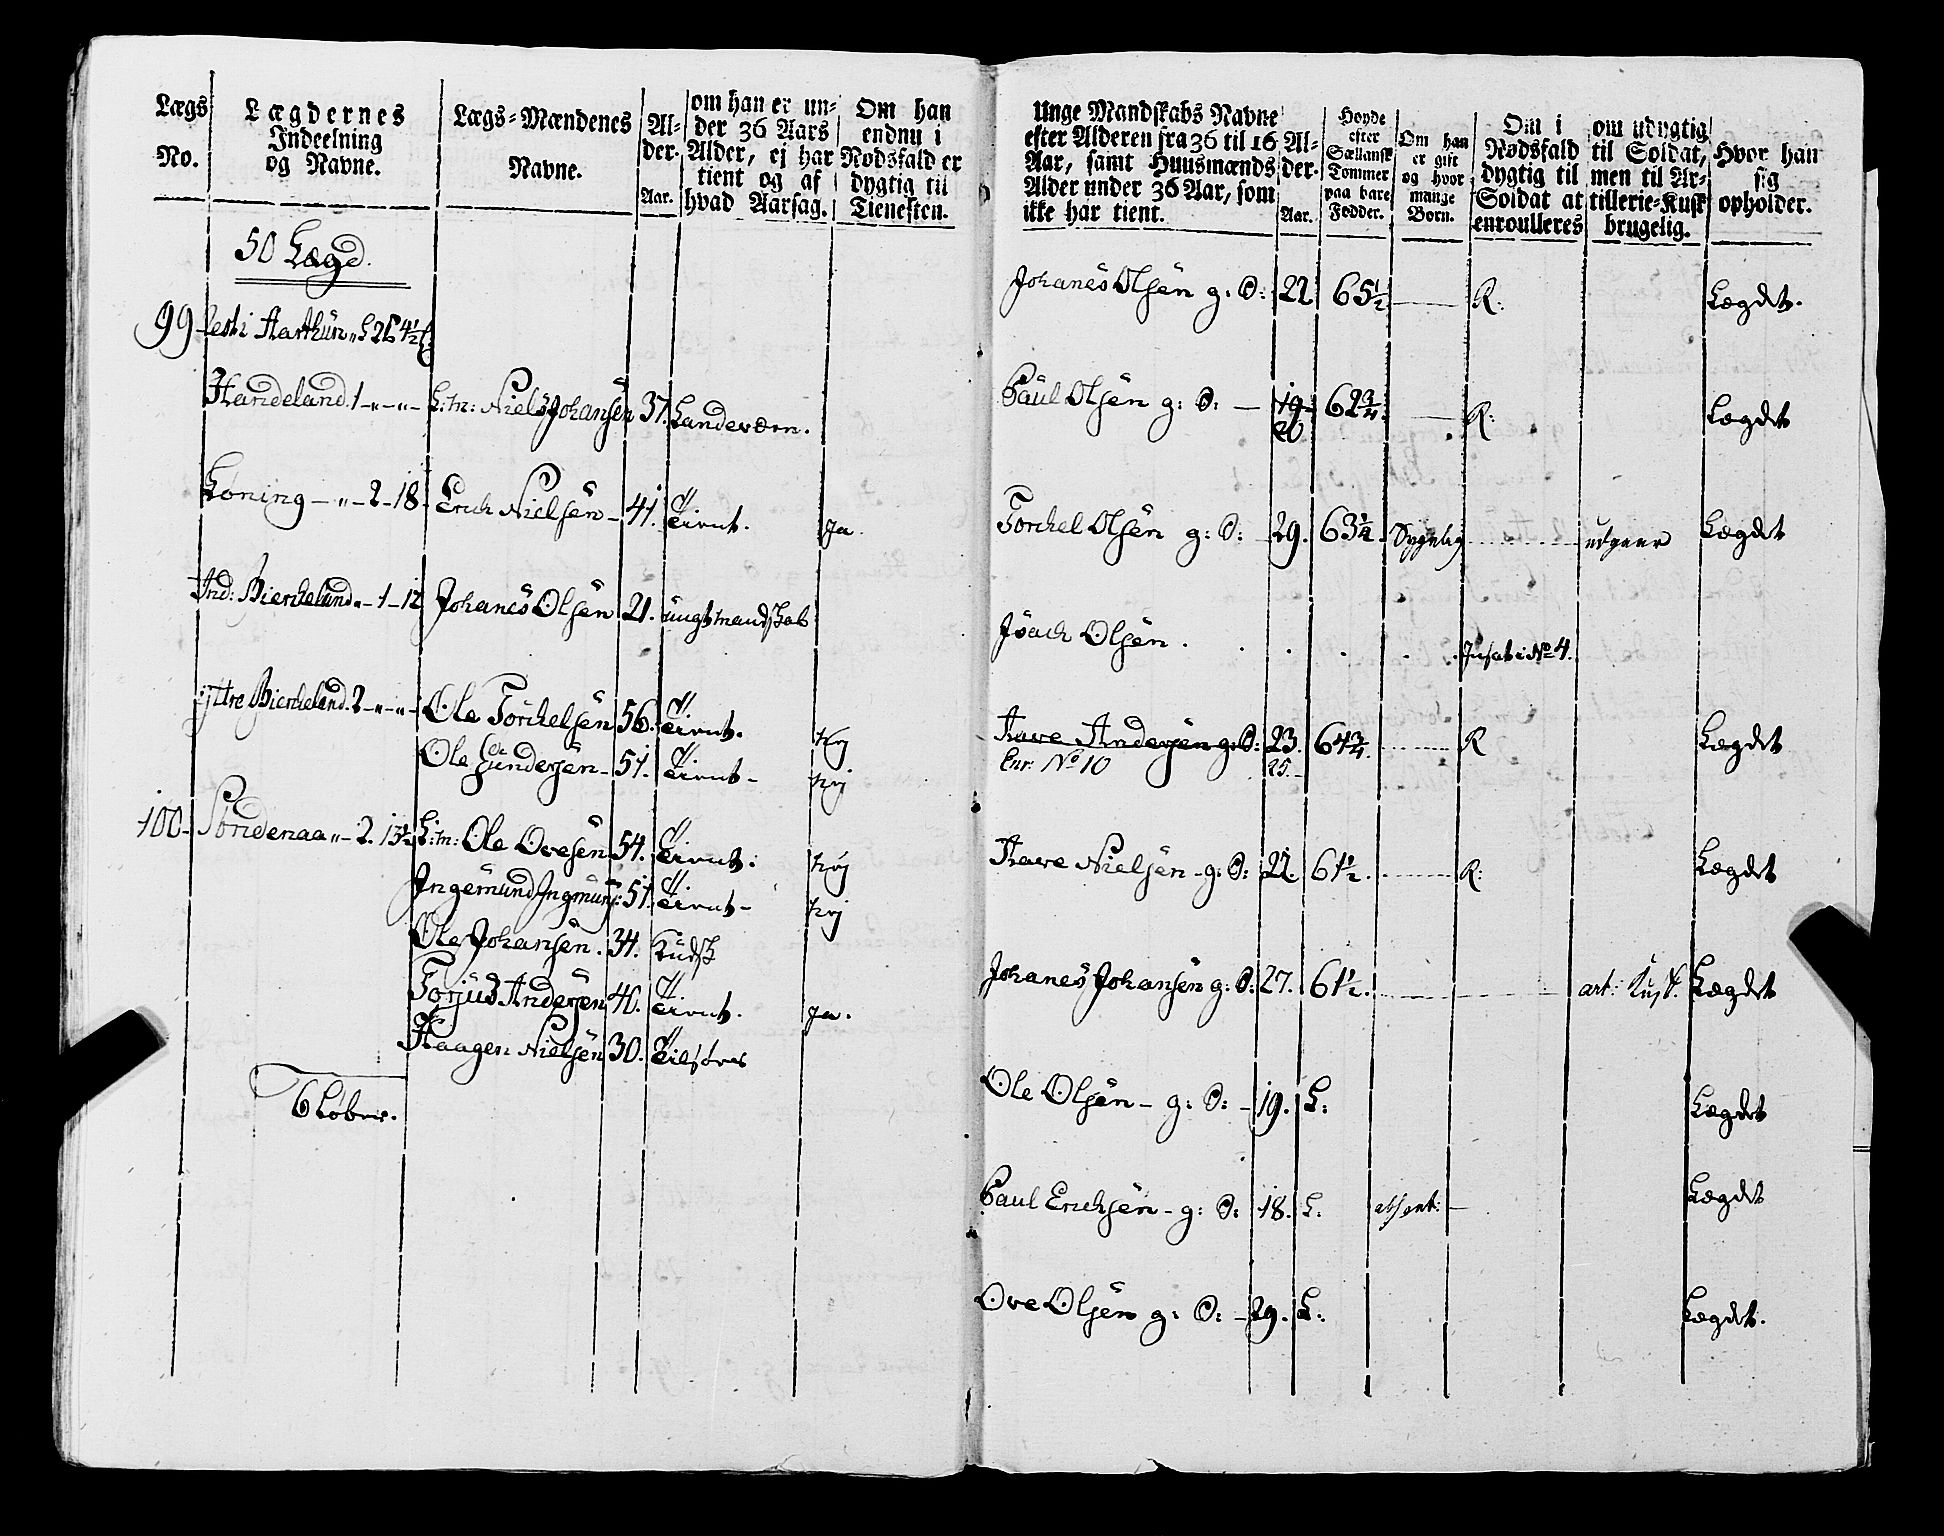 Lægs No.
Lægdernes Indeelning og Navne.
Lægs-Mændenes Navne.
Alder. Aar.
om han er under 36 Aars Alder, ej har tient og af hvad Aarsag.
Om han endnu i Nødsfald er dygtig til Tienesten.
50 Lægd.
99 Harthun
Handeland 1 L:m: Niels Johansen 37. Landeværn.
Koning - " - 2 - 18 Erich Nielsen - 41. Tient. Ja.
Ind: Bierkeland - 1 - 12 Johanes Olsen 21. ungt mandskab
ÿttre Bierkeland. 2 Ole Torkelsen 56. Tient. Nej
Ole Gundersen - 51. Tient - Nej
100 - Sondenaa " - 2. 13½ L:m: Ole Ovesen 54. Tient. Nej
Ingemund Ingmund: 51. Tient - Nej
Ole Johansen. 34. Kudsk
Torjus Andersen 40. Tient. Ja.
Haagen Nielsen 30. 
6 Løber.
Unge Mandskabs Navne efter Alderen fra 36 til 16 Aar, samt Huusmænds Alder under 36 Aar, som ikke har tient.
Alder. Aar.
Høyde efter Sællansk Tommer paa bare Fødder.
Om han er gift og hvor mange Børn.
Om i Nødsfald dygtig til Soldat at enroulleres
om udygtig til Soldat, men til Artillerie-Kusk brugelig.
Hvor han sig opholder.
Johanes Olsen g: S: 22 65½ R: Lægdet.
Paul Olsen g: S: - 19 20 62¾ R: Lægdet
Torchel Olsen g: S: 29. 63¼ Sygelig udgaar Lægdet
Joach Olsen . Insat i No 4.
Aave Andersen g: S: 23. 64¾ R Lægdet
Enr: No 10 25.
Aave Nielsen - g: S: 22. 61½ R: Lægdet
Johanes Johansen g: S: 27. 61½. art: Kusk. Lægdet
Ole Olsen - g: S: - 19. L: Lægdet
Paul Erichsen - g: S: 18. L: absent: Lægdet
Ove Olsen g: S: - 29. L: Lægdet.